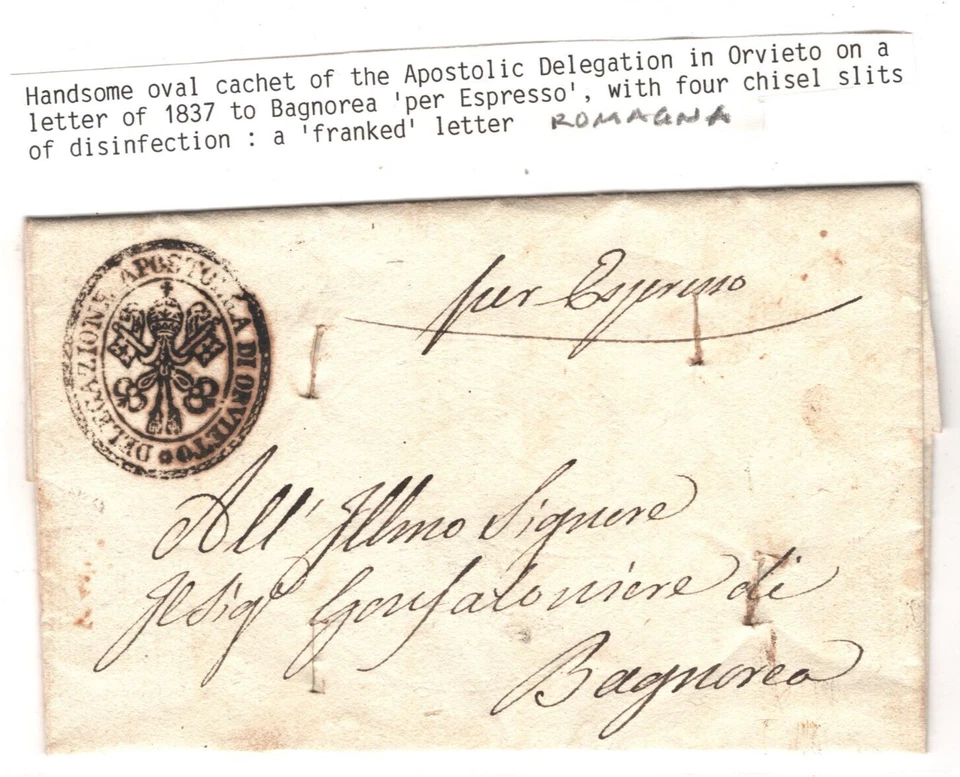 Handsome oval cachet of the Apostolic Delegation in Orvieto on a
letter of 1837 to Bagnorea 'per Espresso', with four chisel slits
of disinfection : a 'franked' letter ROMAGNA
DELEGAZIONE APOSTOLICA DI ORVIETO
per Espresso
All' Illmo Signore
Il Sigr Gonfaloniere di
Bagnorea